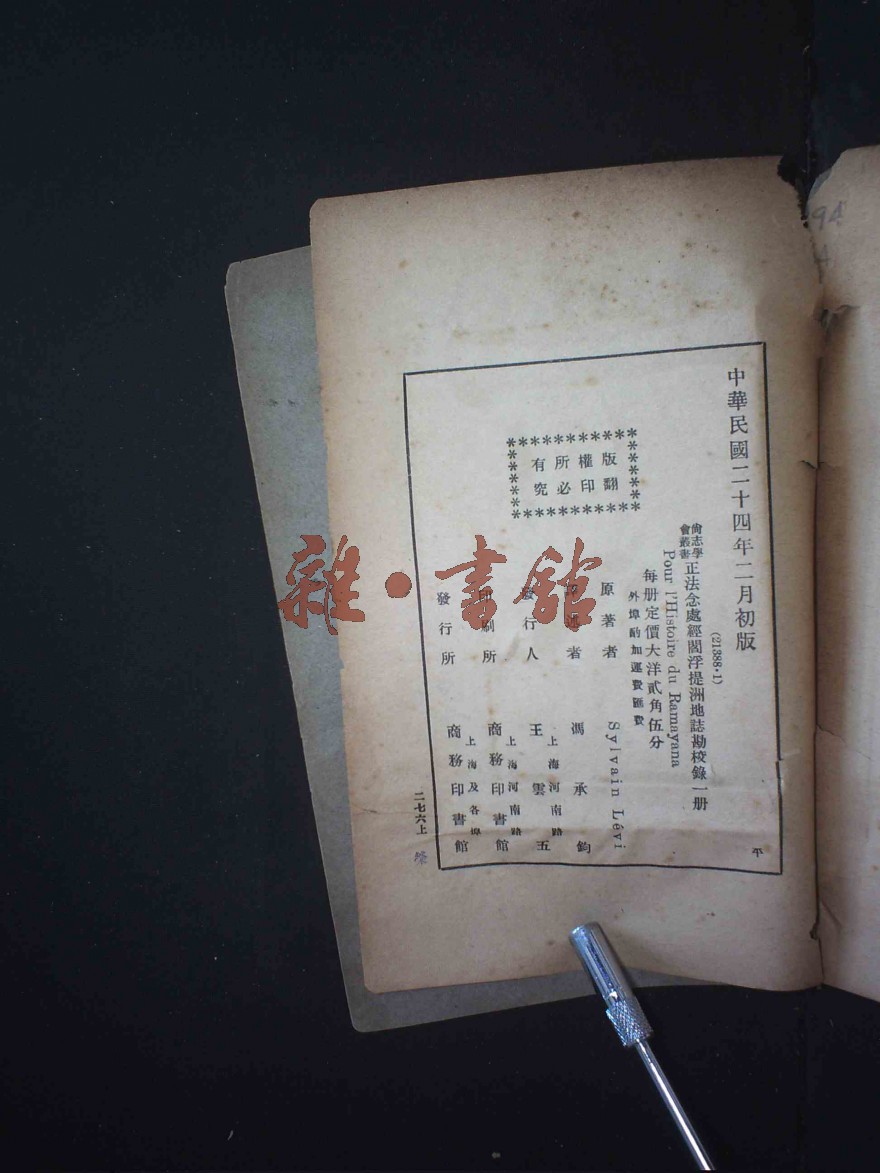 中華民國二十四年二月初版
(21388·1)
尙志學會叢書
正法念處經閻浮提洲地誌勘校錄一册
Pour l'Histoire du Ramayana
每册定價大洋貳角伍分
外埠酌加運費匯費
版權所有
翻印必究
原著者 Sylvain Lévi
馮承鈞
發行人
上海河南路
王雲五
印刷所
上海河南路
商務印書館
發行所
上海及各埠
商務印書館
二七六上
平
94
雜·書館